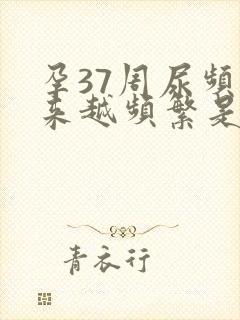 孕37周尿頻
来越頻繁是
青衣行